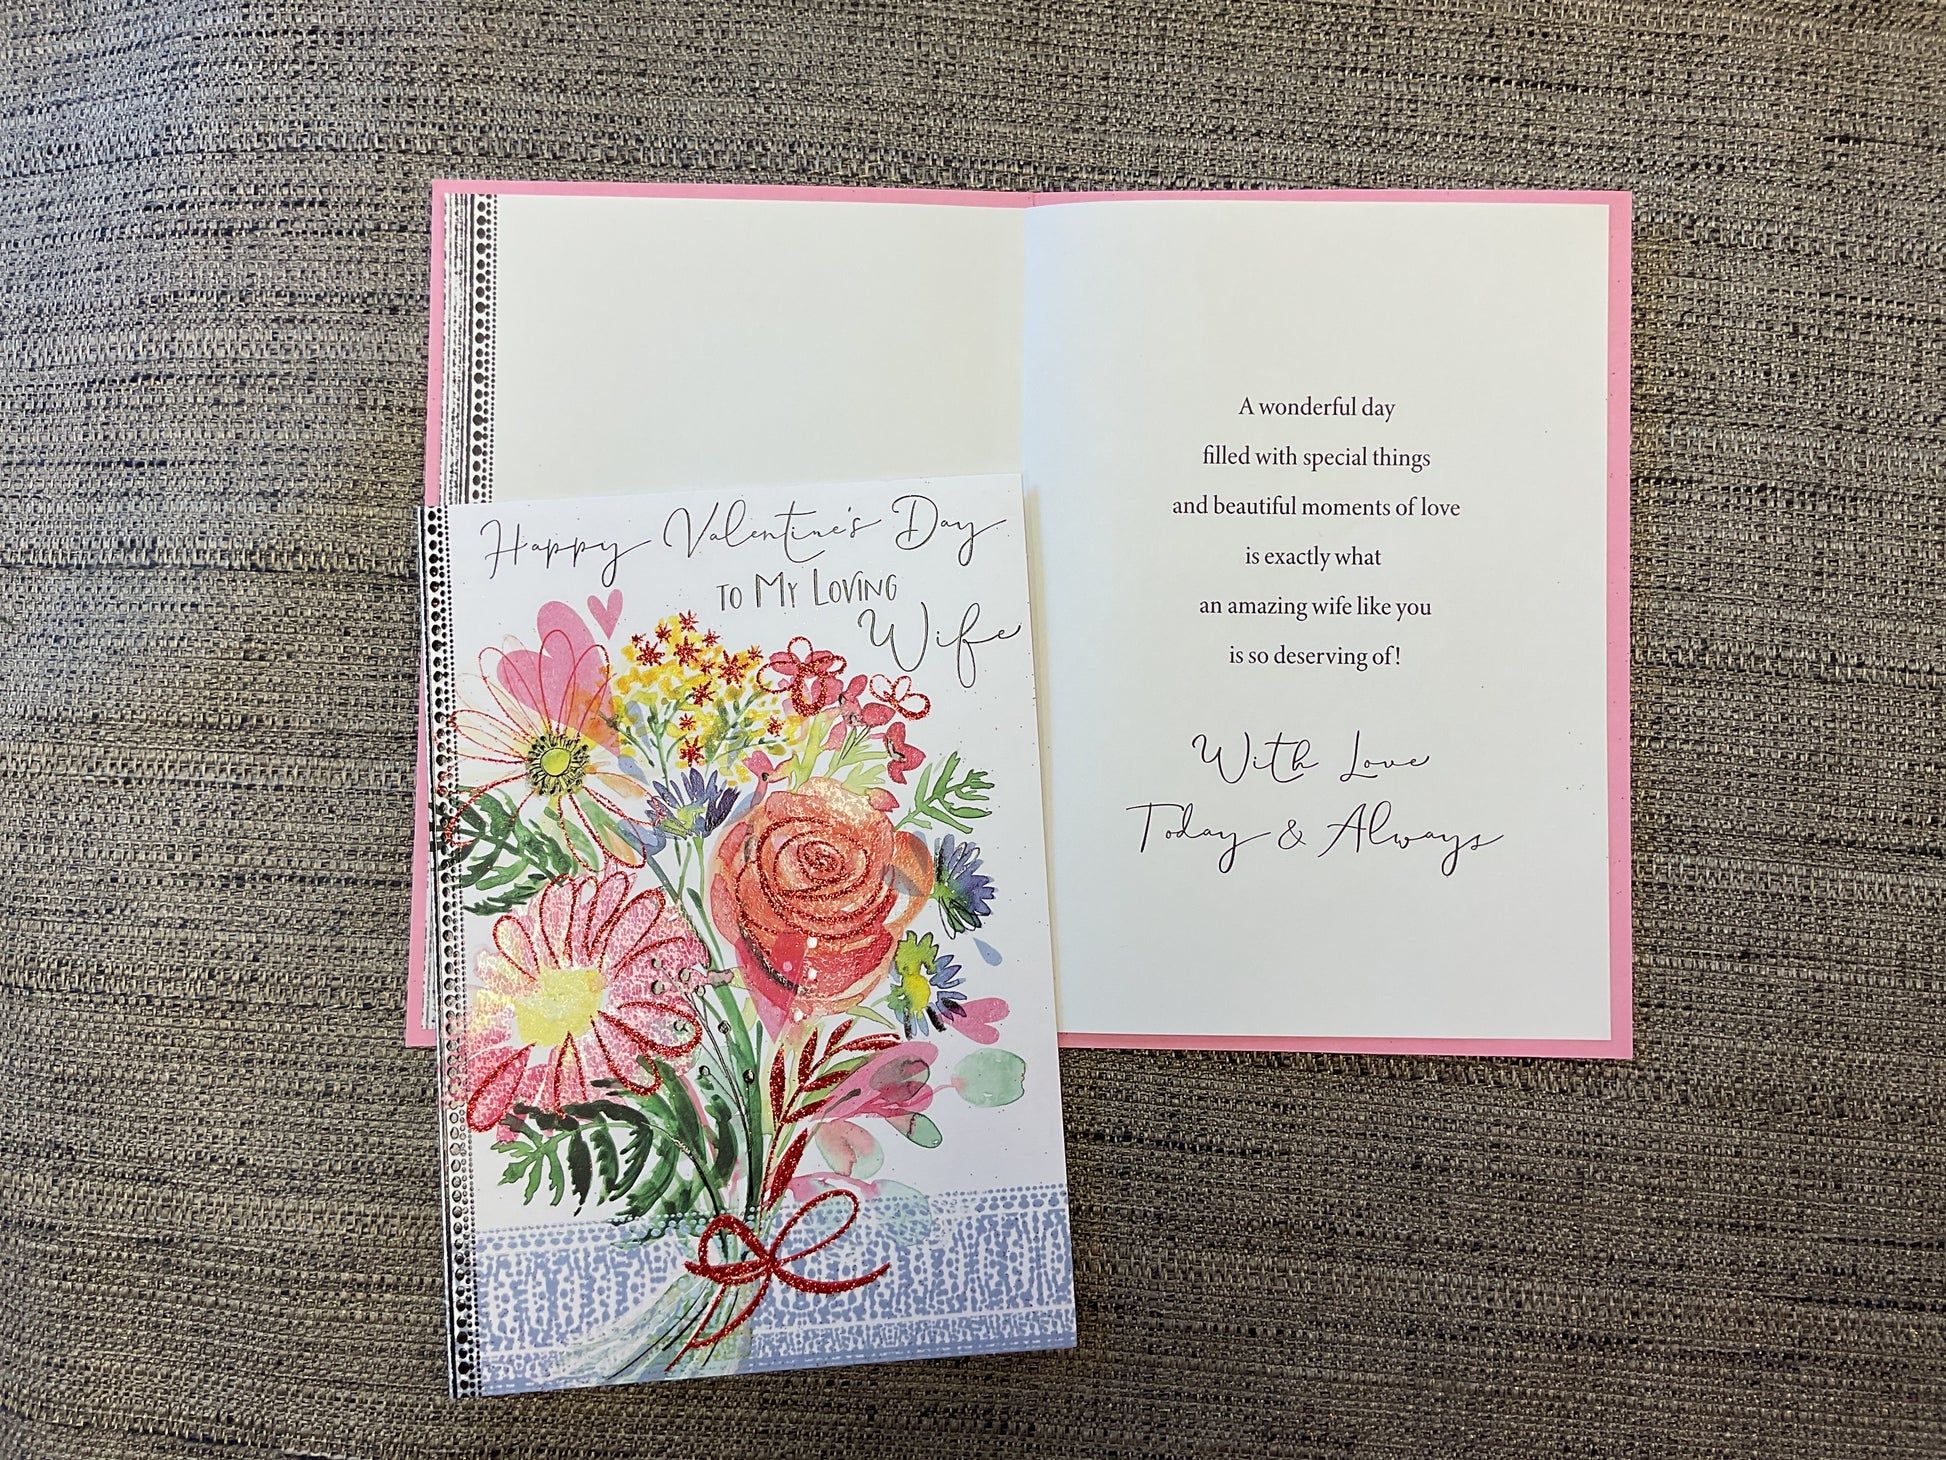 Happy Valentine's Day
TO MY LOVING
Wife
A wonderful day
filled with special things
and beautiful moments of love
is exactly what
an amazing wife like you
is so deserving of!
With Love
Today & Always